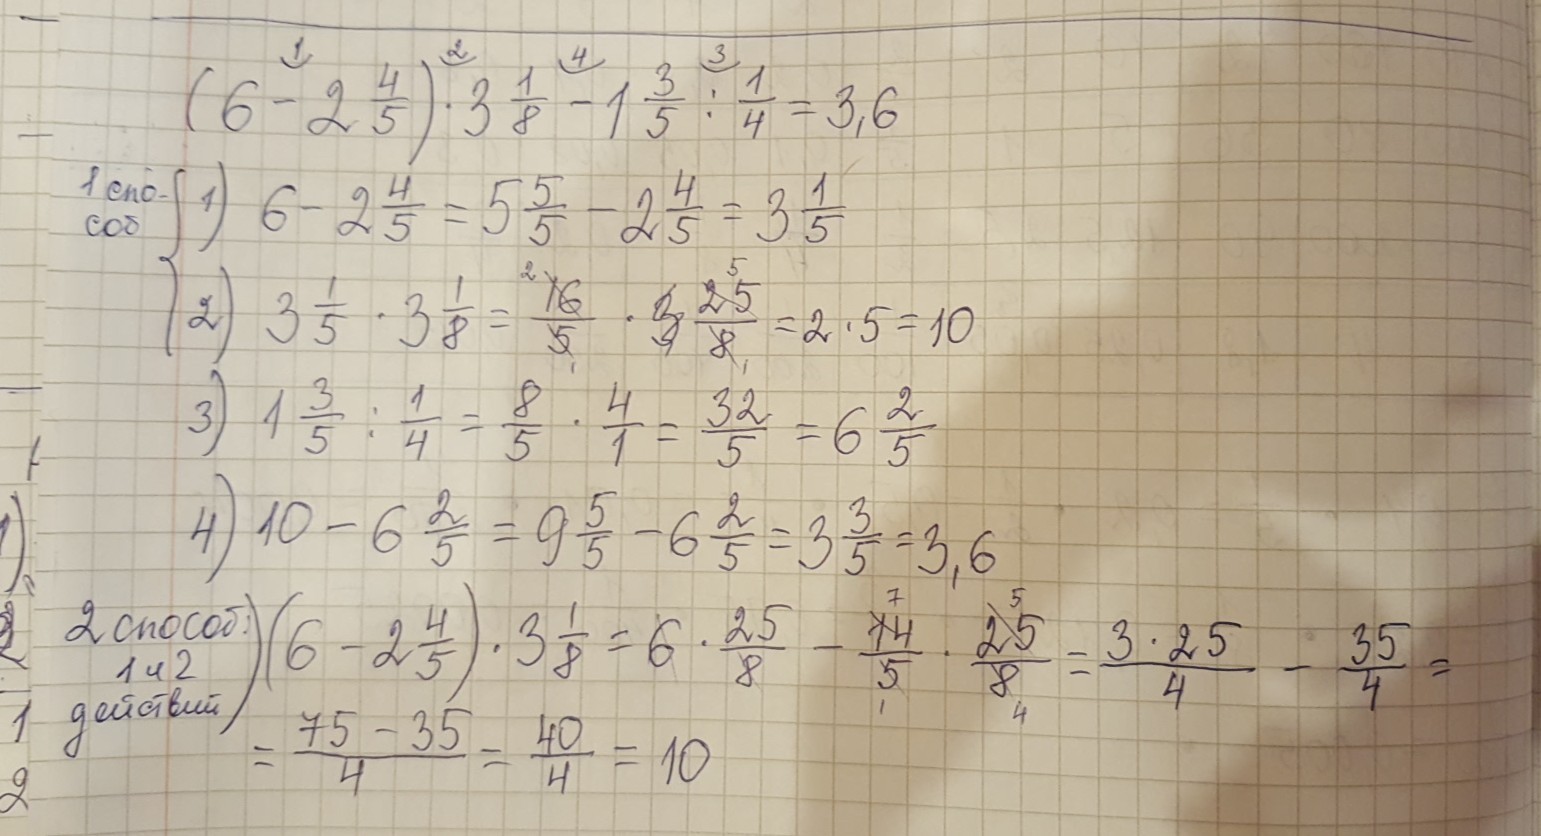 (6 - 2 4/5) · 3 1/8 - 1 3/5 : 1/4 = 3,6
1 спо-
соб
1) 6 - 2 4/5 = 5 5/5 - 2 4/5 = 3 1/5
2) 3 1/5 · 3 1/8 = 16/5 · 25/8 = 2 · 5 = 10
3) 1 3/5 : 1/4 = 8/5 · 4/1 = 32/5 = 6 2/5
4) 10 - 6 2/5 = 9 5/5 - 6 2/5 = 3 3/5 = 3,6
2 способ:
1 и 2
действий
(6 - 2 4/5) · 3 1/8 = 6 · 25/8 - 14/5 · 25/8 = 3 · 25/4 - 35/4 =
= 75 - 35/4 = 40/4 = 10